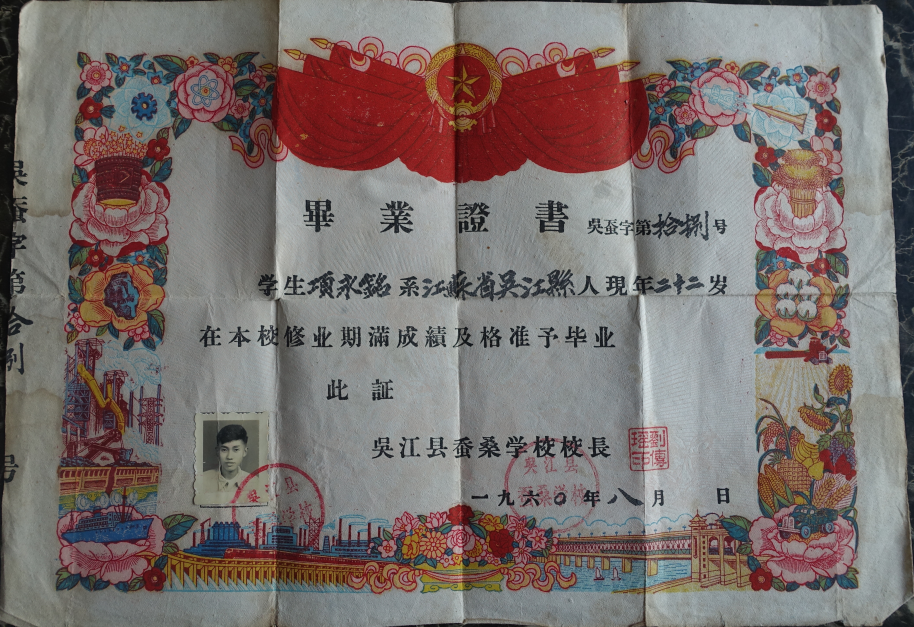 畢業證書
吳蚕字第拾捌号
学生項永銘系江蘇省吴江縣人現年二十二岁
在本校修业期滿成績及格准予毕业
此証
吳江县蚕桑学校校長
一九六〇年八月 日
吳江县
蚕桑学校
吳蚕字第拾捌号